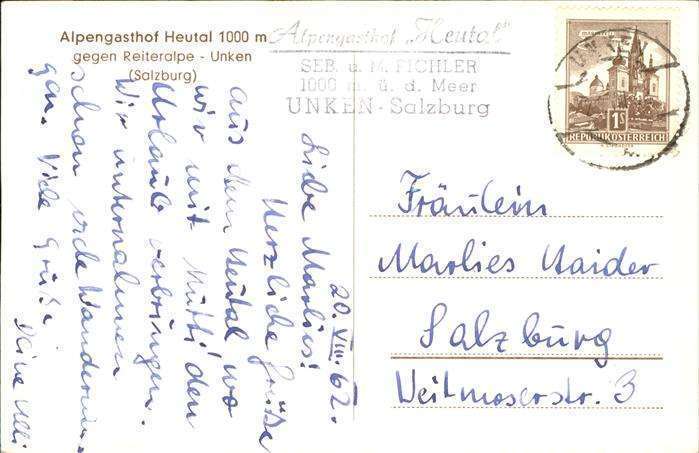 Alpengasthof Heutal 1000 m
gegen Reiteralpe - Unken
(Salzburg)
Alpengasthof „Heutal"
SEB. u. M. PICHLER
1000 m. ü. d. Meer
UNKEN - Salzburg
UNKEN
1S
REPUBLIK ÖSTERREICH
20. VIII. 62.
Liebe Marlies!
Herzliche Grüße
aus dem Heutal wo
wir mit Mutti den
Urlaub verbringen.
Wir unternahmen
schon viele Wanderun-
gen. Viele Grüße
Deine
Fräulein
Marlies Haider
Salzburg
Weitmoserstr. 3